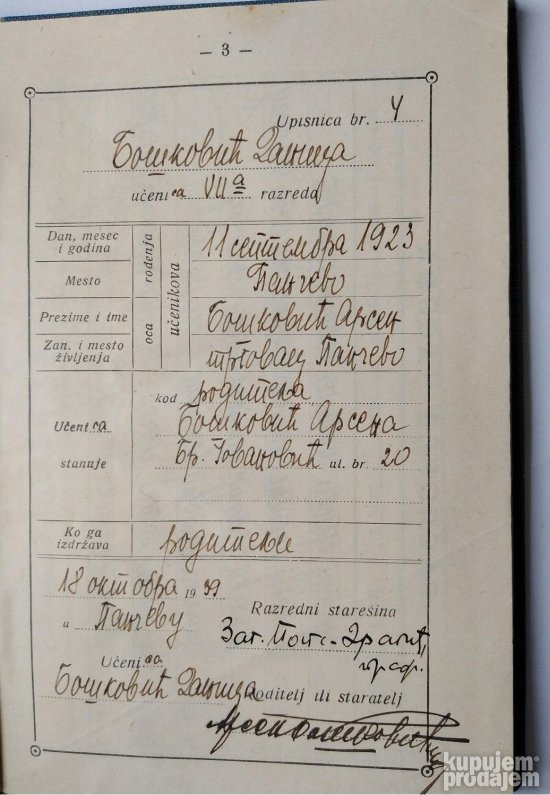 — 3 —
Upisnica br. 4
Бошковић Даница
učenica VII a razreda
Dan, mesec i godina
rođenja
učenikova
11 септембра 1923
Mesto
Панчево
Prezime i ime
oca
Бошковић Арсен
Zan. i mesto življenja
трговац Панчево
Učenica stanuje
kod родитеља
Бошковић Арсена
Бр. Јовановић ul. br. 20
Ko ga izdržava
родитељи
18 октобра 1939
u Панчеву
Razredni starešina
Učenica
Бошковић Даница
Roditelj ili staratelj
kupujem prodajem